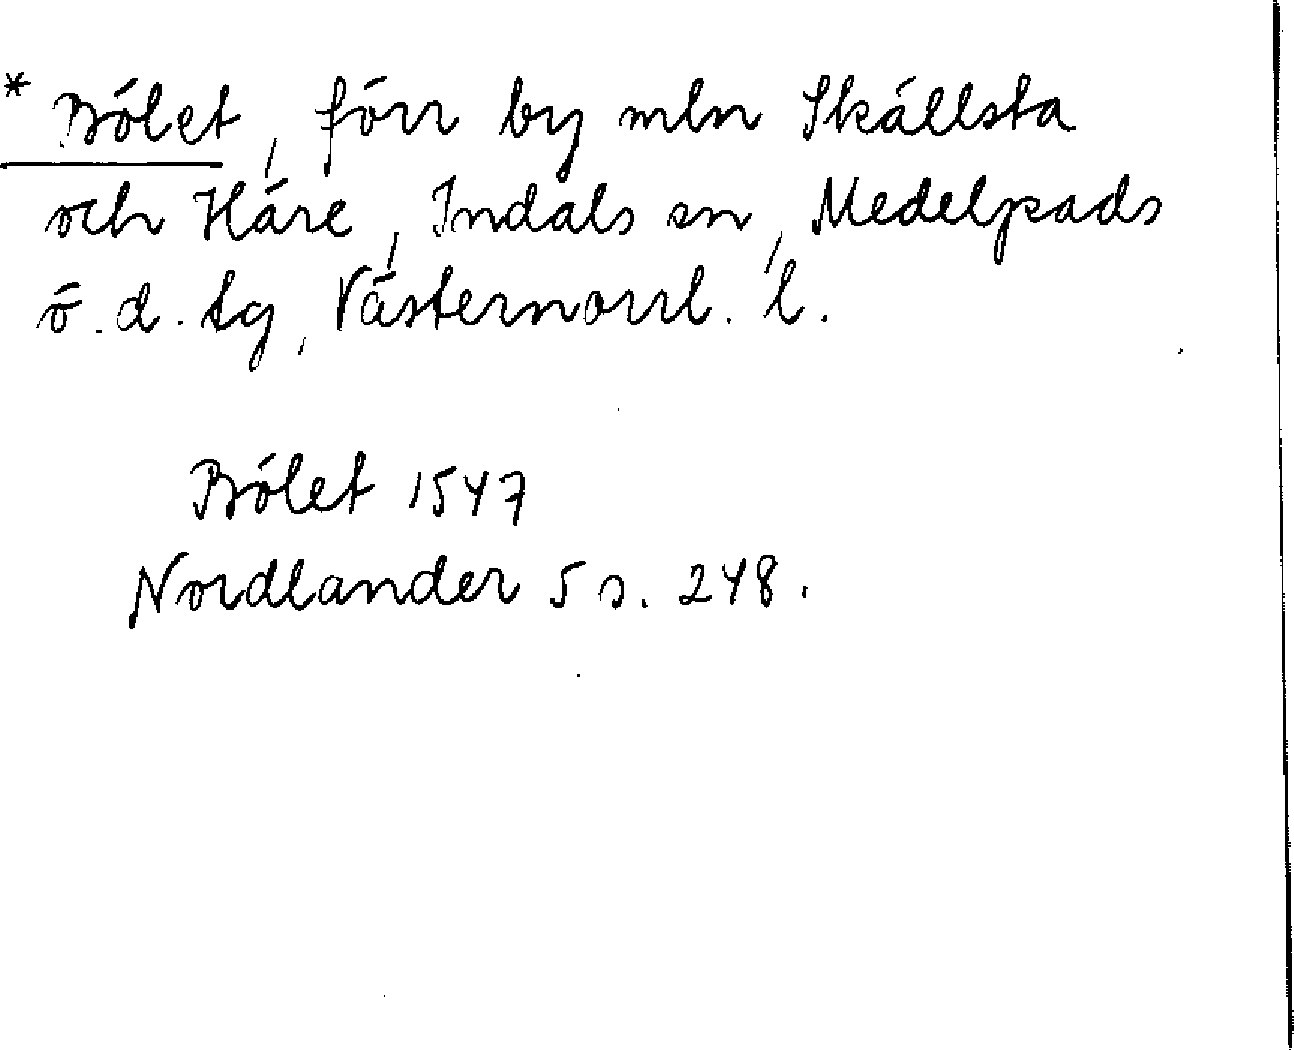 * Bölet, förr by mln Skällsta
och Häre, Indals sn, Medelpads
ö. d. tg, Västernorrl. l.
Bölet 1547
Nordlander 5 s. 248.